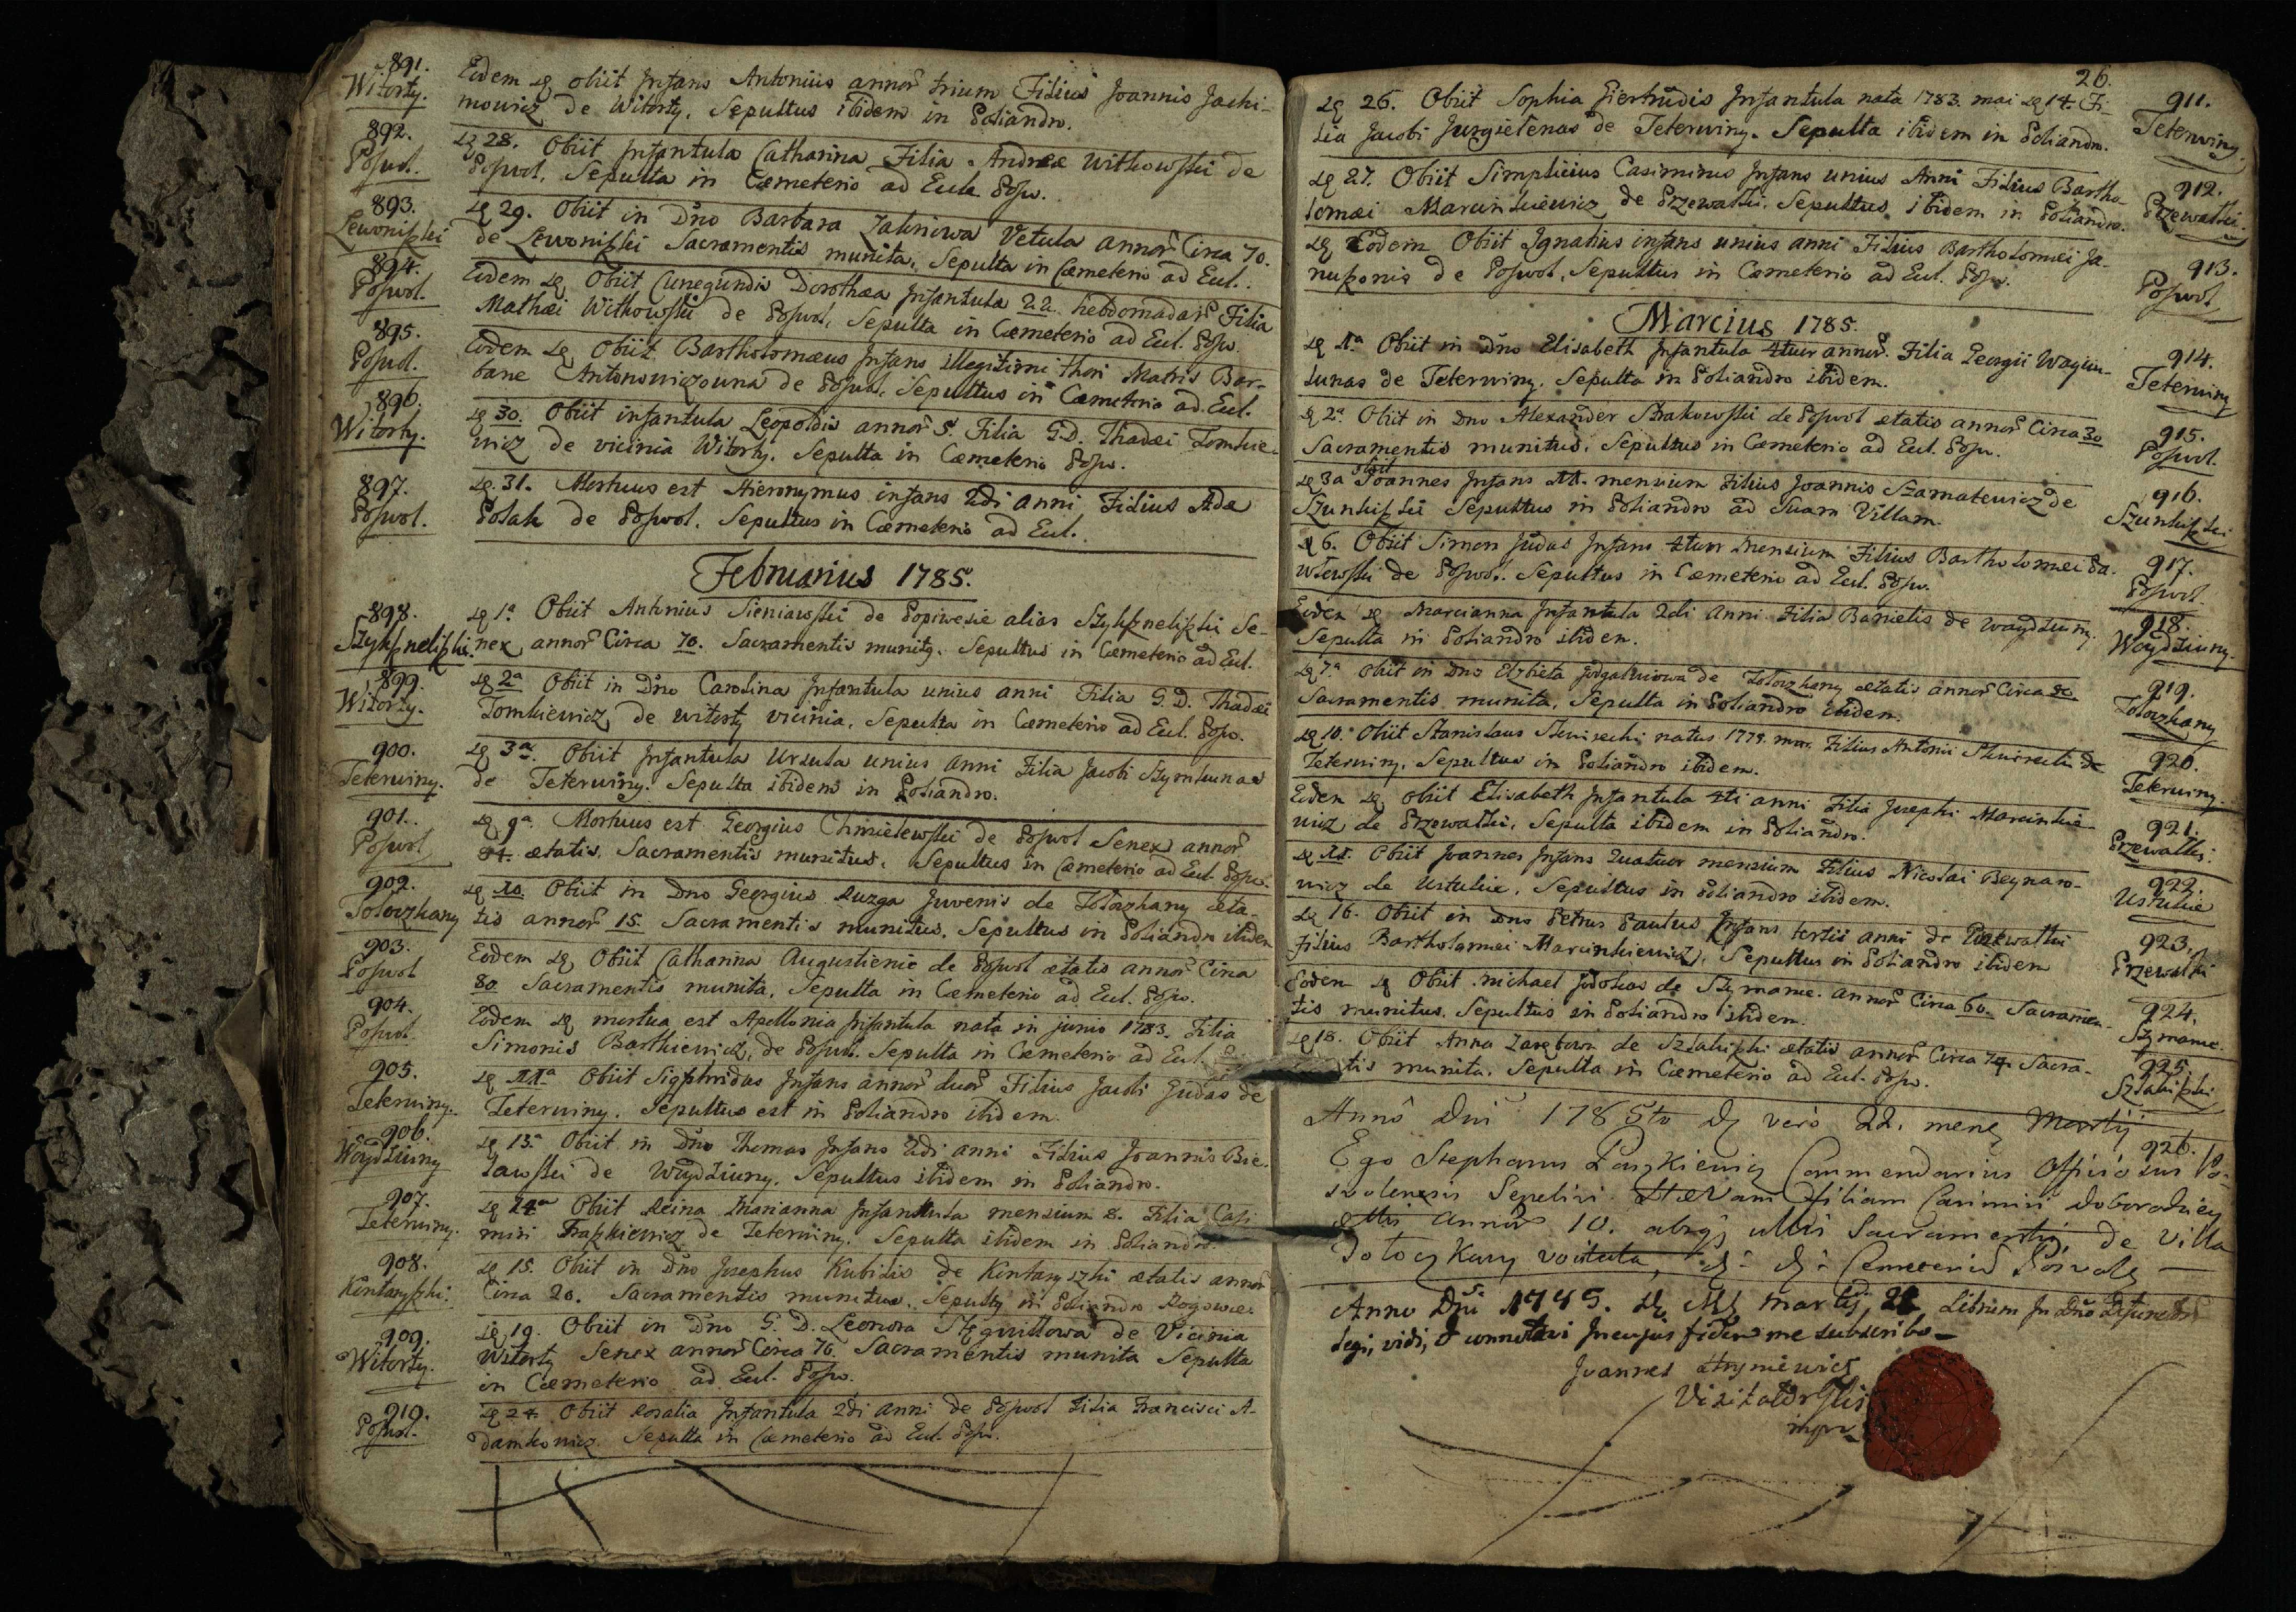 891.
Witorty.
Eodem obiit Infans Antonius annor trium Filius Joannis Jachi-
mowicz de Witorty. Sepultus ibidem in Poliandro.
892.
Poswol.
28. Obiit Infantula Catharina Filia Andreæ Witkowski de
Poswol. Sepulta in Cæmeterio ad Eccle. Posw.
893.
Lewoniszki
29. Obiit in Dno Barbara Vetula annor Circa 70.
de Lewoniszki Sacramentis munita. Sepulta in Cæmeterio ad Ecl.
894.
Poswol.
Eodem Obiit Cunegundis Dorothæa Infantula 22. hebdomadar Filia
Mathæi Witkowski de Poswol. Sepulta in Cæmeterio ad Ecl. Posw.
895.
Poswol.
Eodem Obiit Bartholomæus Infans illegitimi thori Matris Bar-
bare Antonowiczowna de Poswol. Sepultus in Cæmeterio ad Ecl.
896.
Witorty.
30. Obiit infantula Leopoldis annor 5. Filia G.D. Thadæi Tomkie-
wicz de vicinia Witorty. Sepulta in Cæmeterio Posw.
897.
Poswol.
31. Mortuus est Hieronymus infans 2di anni Filius Adæ
Polak de Poswol. Sepultus in Cæmeterio ad Ecl.
Februarius 1785.
898.
Szykszneliszki.
1a Obiit Antonius Sieniawski de Popiwesie alias Szykszneliszki Se-
nex annor Circa 70. Sacramentis munity. Sepultus in Cæmeterio ad Ecl.
899.
Witorty.
2a Obiit in Dno Carolina Infantula unius anni Filia G. D. Thadæi
Tomkiewicz de witorty vicinia. Sepulta in Cæmeterio ad Ecl. Posw.
900.
Teterwiny.
3a Obiit Infantula Ursula unius anni Filia Jacobi Szymkunas
de Teterwiny. Sepulta ibidem in Poliandro.
901.
Poswol
9a Mortuus est Georgius Chmielewski de Poswol Senex annor
ætatis. Sacramentis munitus. Sepultus in Cæmeterio ad Ecl. Posw.
902.
Toloczkany
10 Obiit in Dno Georgius Ruzga Juvenis de Toloczkany æta-
tis annor 15. Sacramentis munitus. Sepultus in Poliandro ibidem
903.
Poswol
Eodem Obiit Catharina Augustienie de Poswol ætatis annor Circa
80 Sacramentis munita. Sepulta in Cæmeterio ad Ecl. Posw.
904.
Poswol.
Eodem mortua est Apellonia Infantula nata in junio 1783. Filia
Simonis Bartkiewicz, de Poswol. Sepulta in Cæmeterio ad Ecl.
905.
Teterwiny.
11a Obiit Sigphridus Infans annor duor Filius Jacobi Judas de
Teterwiny. Sepultus est in Poliandro ibidem.
906.
Woydziuny
13a Obiit in Dno Thomas Infans 2di anni Filius Joannis Bie-
lawski de Woydziuny. Sepultus ibidem in Poliandro.
907.
Teterwiny.
14a Obiit Reina Marianna Infantula mensium 8. Filia Casi
miri Trapkiewicz de Teterwiny. Sepulta ibidem in Poliandro.
908.
Kontaryszki.
15. Obiit in Dno Josephus Kubilis de Kontaryszki ætatis annor
Circa 20. Sacramentis munitus. Sepulty in Poliandro
909.
Witorty.
19. Obiit in Dno G. D. Leonora de Vicinia
Witorty Senex annor Circa 76. Sacramentis munita Sepulta
in Cæmeterio ad Ecl. Posw.
910.
Poswol.
24 Obiit Rosalia Infantula 2di anni de Poswol Filia Francisci A-
damkowicz. Sepulta in Cæmeterio ad Ecl. Posw.
26.
26. Obiit Sophia Giertrudis Infantula nata 1783. mai 14. Fi-
lia Jacobi Jurgielenas de Teterwiny. Sepulta ibidem in Poliandro.
911.
Teterwiny.
27. Obiit Simplicius Casimirus Infans unius Anni Filius Bartho-
lomæi Marcinkiewicz de Przewalki. Sepultus ibidem in Poliandro.
912.
Przewalki.
Eodem Obiit Ignatius infans unius anni Filius Bartholomæi Ja-
nuszonis de Poswol. Sepultus in Cæmeterio ad Ecl. Posw.
913.
Poswol
Marcius 1785.
1a Obiit in Dno Elisabeth Infantula 4tuor annor. Filia Georgii
de Teterwiny. Sepulta in Poliandro ibidem.
914.
Teterwiny
2a Obiit in Dno Alexander Strakowski de Poswol ætatis annor Circa 30
Sacramentis munitus. Sepultus in Cæmeterio ad Ecl. Posw.
915.
Poswol.
3a obiit Joannes Infans 11. mensium Filius Joannis Szamatewicz de
Szunkiszki Sepultus in Poliandro ad Suam Villam.
916.
Szunkiszki
6. Obiit Simon Judas Infans 4tuor mensium Filius Bartholomei Pa-
wlowski de Poswol. Sepultus in Cæmeterio ad Ecl. Posw.
917.
Poswol.
Eodem Marcianna Infantula 2di Anni Filia Banielis de Woydziuny.
Sepulta in Poliandro ibidem.
918.
Woydziuny.
7a obiit in Dno Elzbieta de Toloczkany ætatis annor Circa
Sacramentis munita. Sepulta in Poliandro ibidem.
919.
Toloczkany
10. Obiit Stanislaus natus 1779. Filius Antonii de
Teterwiny. Sepultus in Poliandro ibidem.
920.
Teterwiny.
Eodem obiit Elisabeth Infantula 4ti anni Filia Josephi Marcinkie-
wicz de Przewalki. Sepulta ibidem in Poliandro.
921.
Przewalki.
11. Obiit Joannes Infans Quatuor mensium Filius Nicolai Beynaro-
wicz de Ustukie. Sepultus in Poliandro ibidem.
922.
Ustukie
16. Obiit in Dno Petrus Paulus Infans tertii anni de Przewalki
Filius Bartholomei Marcinkiewicz. Sepultus in Poliandro ibidem
923.
Przewalki
Eodem Obiit michael de Szymanie. annor Circa 60. Sacramen-
tis munitus. Sepultus in Poliandro ibidem.
924.
Szymanie.
18. Obiit Anna de Szlabiszki ætatis annor Circa 74. Sacra-
tis munita. Sepulta in Cæmeterio ad Ecl. Posw.
925.
Szlabiszki
Anno Dni 1785to D vero 22. mens Martij
926.
Ego Stephanus Paszkiewicz Commendarius Officiosus Po-
svolensis Sepelivi filiam Casimiri
annor 10. absq ullis Sacramentis, de Villa
Toloczkany Cemeterio Posvols
Anno Dni 1785. Martij, Librum In Dno Defunctor
legi, vidi, & connotavi In cujus fidem me subscribo
Joannes Hryniewicz
Visitator Glis
mpr